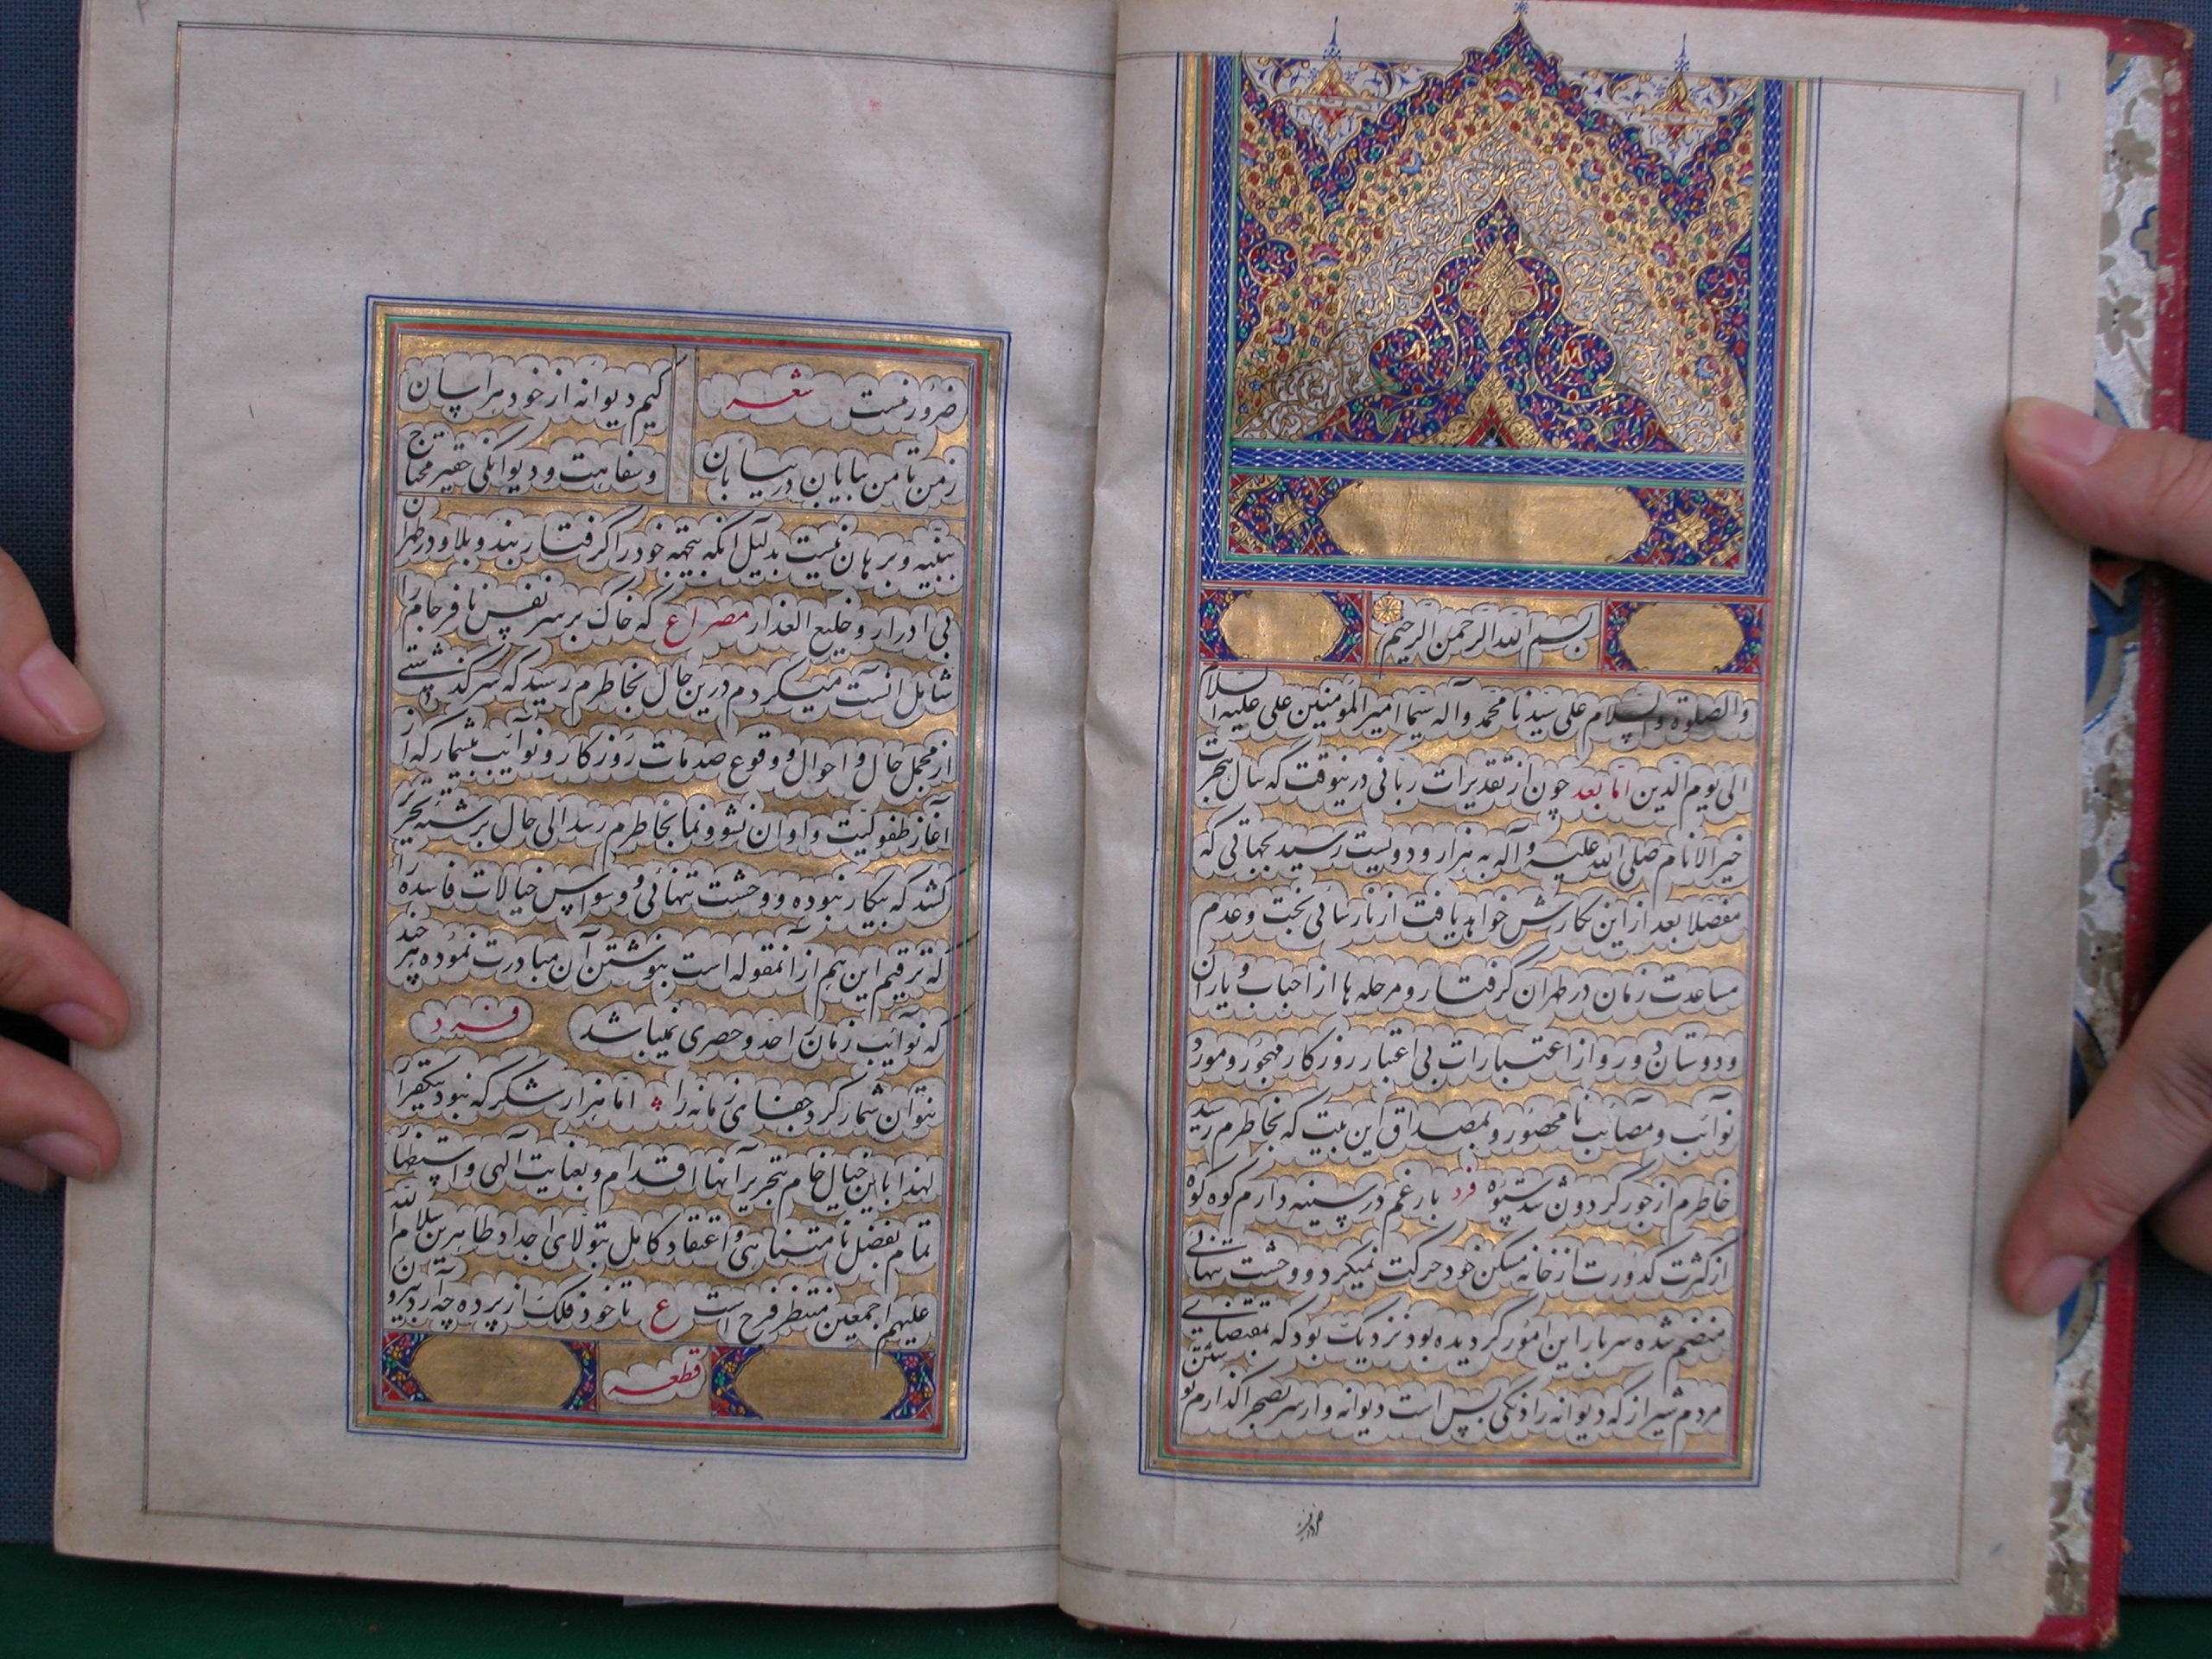 بسم الله الرحمن الرحیم
والصلوة والسلام علی سیدنا محمد وآله سیما امیرالمؤمنین علی علیه السلام
الی یوم الدین اما بعد چون از تقدیرات ربانی درینوقت که سال هجرت
خیرالانام صلی الله علیه وآله به هزار و دویست رسید بجهاتی که
مفصلا بعد ازاین نکارش خواهد یافت از نارسائی بخت وعدم
مساعدت زمان در طهران کرفتار و مرحله ها از احباب و یاران
و دوستان دور و از اعتبارات بی اعتبار روزکار مهجور و مورد
نوآئب و مصآئب نامحصور و بمصداق این بیت که بخاطرم رسید
خاطرم از جور کردون شد ستوه فرد بار غم در سینه دارم کوه کوه
از کثرت کدورت از خانه مسکن خود حرکت نمیکرد و وحشت تنهائی
منضم شده سربار این امور کردیده بود نزدیک بود که بمقتضای
مردم شیراز که دیوانه را بس است دیوانه وار سر بصحرا کذارم
ضرور نیست شعر کیم دیوانه از خود هراسان
زمن تا من بیابان در بیابان وسفاهت و دیوانکی حقیر محتاج
ببینه و برهان نیست بدلیل آنکه بیجهه خود را کرفتار بند و بلا و در طهران
بی ادرار و خلیع العذار مصراع که خاک بر سر نفس نافرجام را
شامل آنست میکردم درین حال بخاطرم رسید که سرکذشتی
از مجمل حال و احوال و وقوع صدمات روزکار و نوآئب بیشمار که از
آغاز طفولیت و اوان نشو ونما بخاطرم رسد الی حال برشته تحریر
کشد که بیکار نبوده و وحشت تنهائی و وسواس خیالات فاسده را
که ترقیم این هم از آنمقوله است بنوشتن آن مبادرت نموده هر چند
که نوآئب زمان احد و حصری نمیباشد فرد
نتوان شمار کرد جفای زمانه را اما هزار شکر که نبود یکقرار
لهذا باین خیال خام بتحریر آنها اقدام و بعنایت آلهی و استظهار
تمام بفضل نامتناهی و اعتقاد کامل بتولای اجداد طاهرین سلام الله
علیهم اجمعین منتظر فرح است ع تا خود فلک از پرده چه آرد بیرون
قطعه